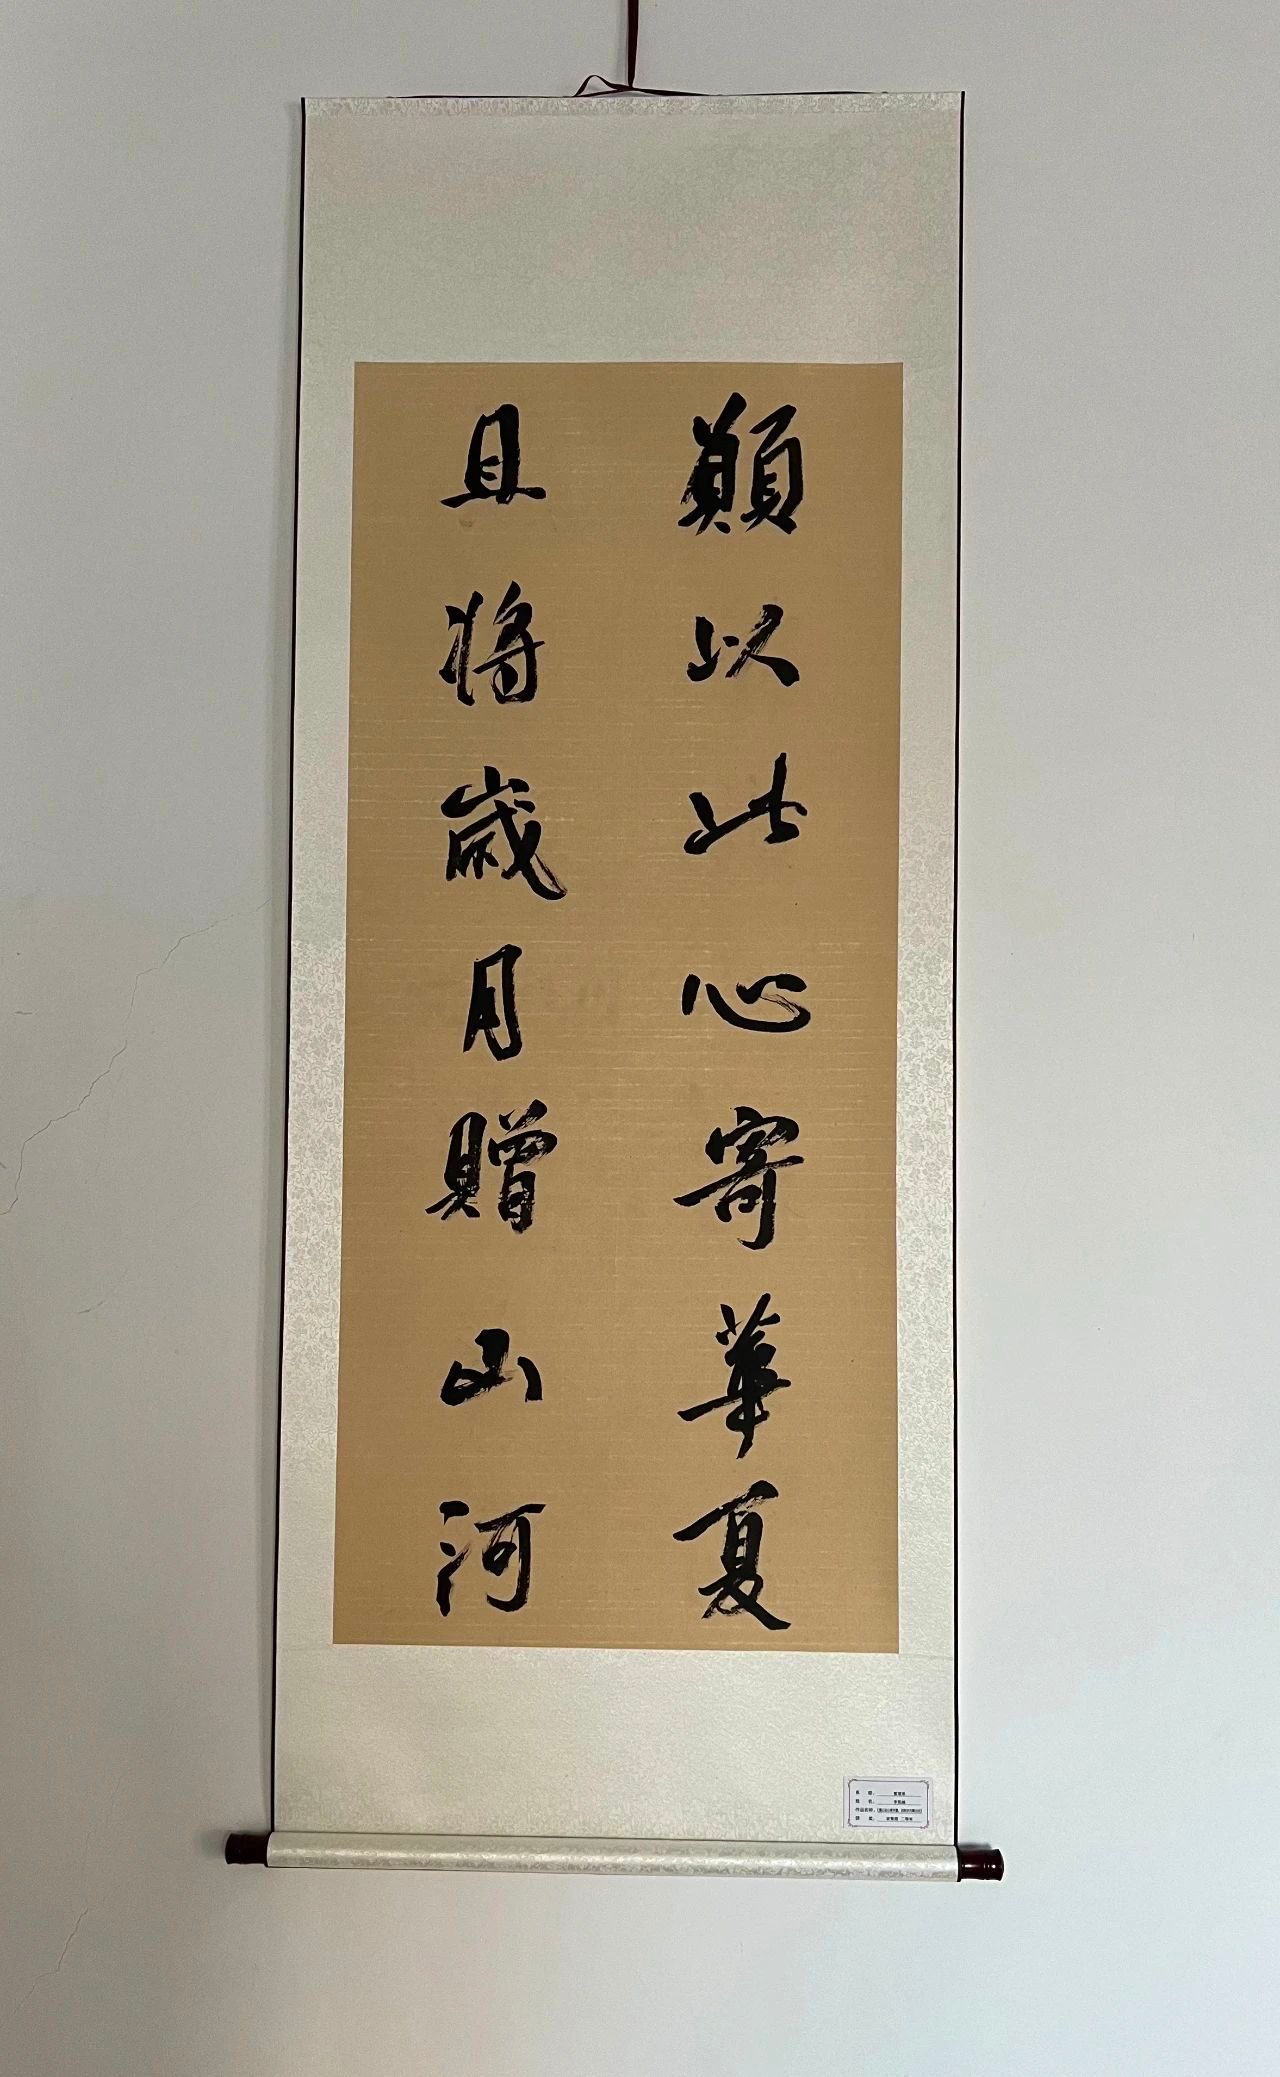 願以此心寄華夏
且將歲月贈山河